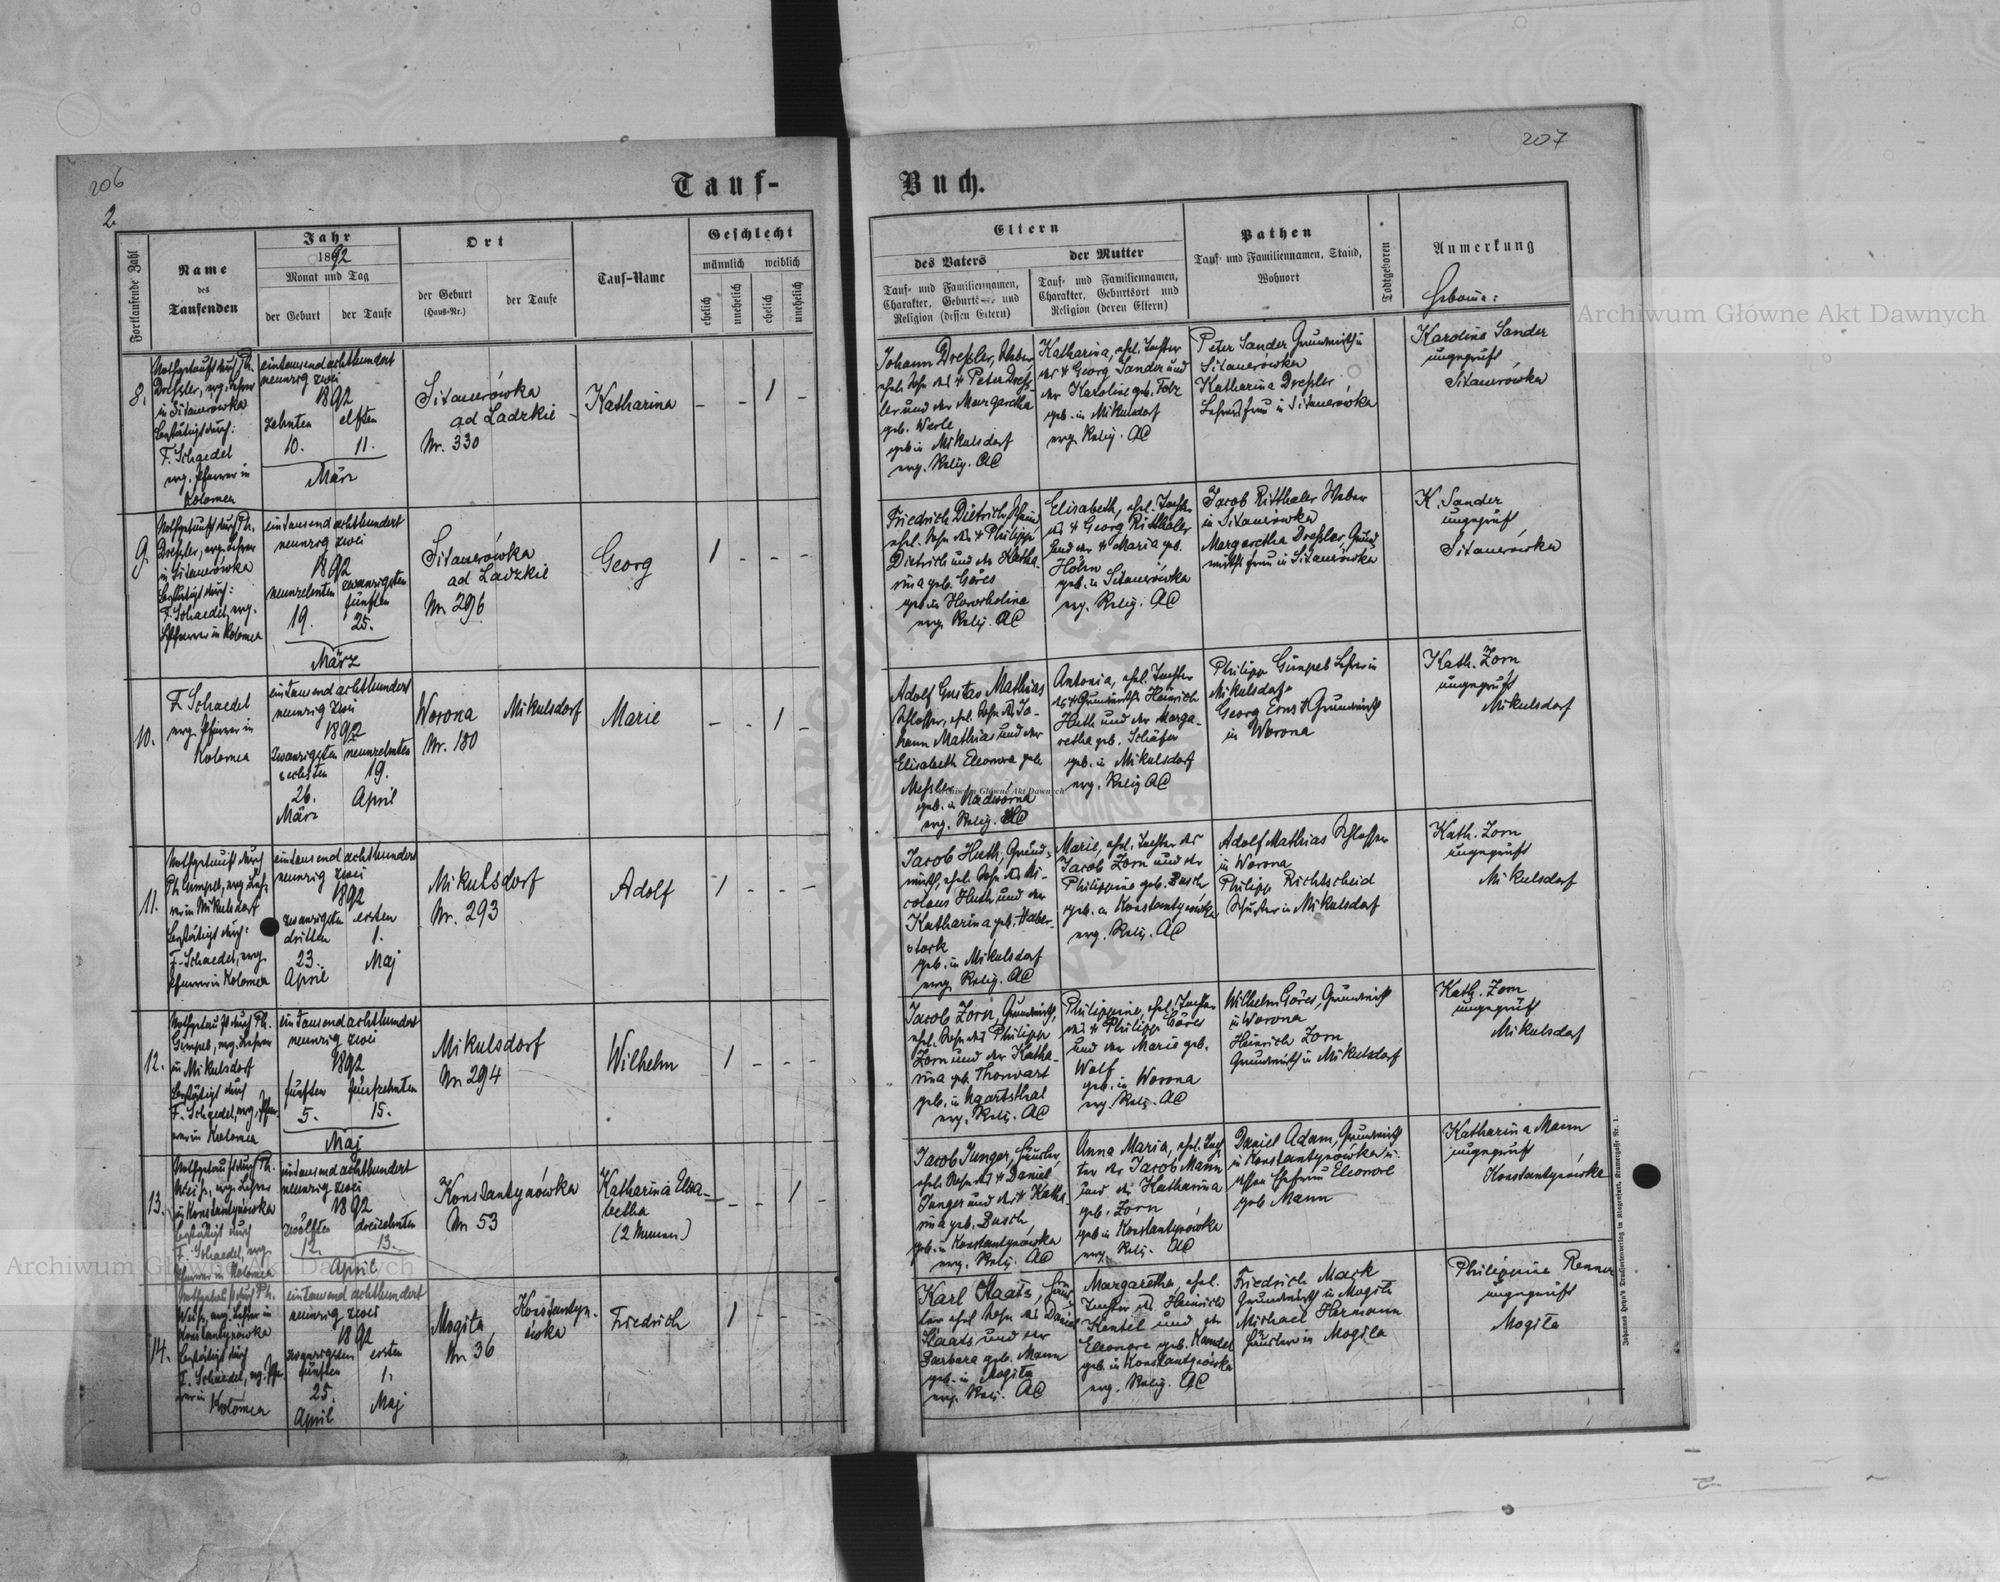 206
2.
Tauf-
Fortlaufende Zahl
Name
des
Taufenden
Jahr
1892
Monat und Tag
der Geburt
der Taufe
Ort
der Geburt
(Haus-Nr.)
der Taufe
Tauf-Name
Geschlecht
männlich
weiblich
ehelich
unehelich
ehelich
unehelich
8.
Nothgetauft durch Ph.
Dreßler, evg. Lehrer
in Sitauerówka
bestätigt durch:
F. Schaedel
evg. Pfarrer in
Kolomea
eintausend achthundert
neunzig zwei
1892
zehnten
elften
10.
11.
März
Sitauerówka
ad Ladzkie
Nr. 330
Katharina
- - 1 -
9.
Nothgetauft durch Ph.
Dreßler, evg. Lehrer
in Sitauerówka
bestätigt durch:
F. Schaedel, evg.
Pfarrer in Kolomea
eintausend achthundert
neunzig zwei
1892
neunzehnten
zwanzigsten
fünften
19.
25.
März
Sitauerówka
ad Ladzkie
Nr. 296
Georg
1 - - -
10.
F. Schaedel
evg. Pfarrer in
Kolomea
eintausend achthundert
neunzig zwei
1892
zwanzigsten
sechsten
26.
März
neunzehnten
19.
April
Worona
Nr. 180
Mikulsdorf
Marie
- - 1 -
11.
Nothgetauft durch
Ph. Gimpel, evg. Leh-
rer in Mikulsdorf
bestätigt durch:
F. Schaedel, evg.
Pfarrer in Kolomea
eintausend achthundert
neunzig zwei
1892
zwanzigsten
dritten
23.
April
ersten
1.
Maj
Mikulsdorf
Nr. 293
Adolf
1 - - -
12.
Nothgetauft durch Ph.
Gimpel, evg. Lehrer
in Mikulsdorf
bestätigt durch
F. Schaedel, evg. Pfar-
rer in Kolomea
eintausend achthundert
neunzig zwei
1892
fünften
fünfzehnten
5.
15.
Maj
Mikulsdorf
Nr. 294
Wilhelm
1 - - -
13.
Nothgetauft durch Ph.
Weiß, evg. Lehrer
in Konstantynówka
bestätigt durch
F. Schaedel, evg.
Pfarrer in Kolomea
eintausend achthundert
neunzig zwei
1892
zwölften
dreizehnten
12.
13.
April
Konstantynówka
Nr. 53
Katharina Elisa-
betha
- - 1 -
14.
Nothgetauft durch Ph.
Weiß, evg. Lehrer in
Konstantynówka
bestätigt durch
F. Schaedel, evg. Pfar-
rer in
Kolomea
eintausend achthundert
neunzig zwei
1892
zwanzigsten
fünften
25.
April
ersten
1.
Maj
Mogiła
Nr. 36
Konstantyn-
ówka
Friedrich
1 - - -
207
Buch.
Eltern
des Vaters
Tauf- und Familiennamen,
Charakter, Geburtsort und
Religion (dessen Eltern)
der Mutter
Tauf- und Familiennamen,
Charakter, Geburtsort und
Religion (deren Eltern)
Pathen
Tauf- und Familiennamen, Stand,
Wohnort
Todtgeboren
Anmerkung
Hebame:
Johann Dreßler, Weber
ehel. Sohn des † Peter Dreß-
ler und der Margaretha
geb. Werle
geb. in Mikulsdorf
evg. Relig. AC
Katharina, ehel. Tochter
des † Georg Sander und
der Karoline geb. Folz
geb. in Mikulsdorf
evg. Relig. AC
Peter Sander Grundwirth in
Sitauerówka
Katharina Dreßler
Lehrersfrau in Sitauerówka
Karoline Sander
ungeprüft
Sitauerówka
Friedrich Dietrich,
ehel. Sohn des † Philipp
Dietrich und der Katha-
rina geb. Göres
geb. in Horocholina
evg. Relig. AC
Elisabeth, ehel. Tochter
des † Georg Ritthaler
und der † Maria geb.
Höhn
geb. in Sitauerówka
evg. Relig. AC
Jacob Ritthaler Weber
in Sitauerówka
Margaretha Dreßler, Grund-
wirths frau in Sitauerówka
K. Sander
ungeprüft
Sitauerówka
Adolf Gustav Mathias
Schlosser, ehel. Sohn des Jo-
hann Mathias und der
Elisabeth Eleonora geb.
Meßler
geb. in Nadwórna
evg. Relig. AC
Antonia, ehel. Tochter
des † Grundwirths Heinrich
Huth und der Marga-
retha geb. Schäfer
geb. in Mikulsdorf
evg. Relig. AC
Philipp Gimpel Lehrer in
Mikulsdorf
Georg Ernst Grundwirth
in Worona
Kath. Zorn
ungeprüft
Mikulsdorf
Jacob Huth, Grund-
wirth, ehel. Sohn des Ni-
colaus Huth und der
Katharina geb. Haber-
stock
geb. in Mikulsdorf
evg. Relig. AC
Marie, ehel. Tochter des
Jacob Zorn und der
Philippine geb. Busch
geb. in Konstantynówka
evg. Relig. AC
Adolf Mathias Schlosser
in Worona
Philipp Richtscheid
Schuster in Mikulsdorf
Kath. Zorn
ungeprüft
Mikulsdorf
Jacob Zorn, Grundwirth,
ehel. Sohn des Philipp
Zorn und der Katha-
rina geb. Thorwart
geb. in Ugartsthal
evg. Relig. AC
Philippine, ehel. Tochter
des † Philipp Göres
und der Marie geb.
Wolf
geb. in Worona
evg. Relig. AC
Wilhelm Göres, Grundwirth
in Worona
Heinrich Zorn
Grundwirth in Mikulsdorf
Kath. Zorn
ungeprüft
Mikulsdorf
Jacob Junger, Häusler,
ehel. Sohn des † Daniel
Junger und der † Katha-
rina geb. Busch
geb. in Konstantynówka
evg. Relig. AC
Anna Maria, ehel. Toch-
ter des Jacob Mann
und der Katharina
geb. Zorn
geb. in Konstantynówka
evg. Relig. AC
Daniel Adam, Grundwirth
in Konstantynówka u.
dessen Ehefrau Eleonore
geb. Mann
Katharina Mann
ungeprüft
Konstantynówka
Karl Staats, Häus-
ler ehel. Sohn des Daniel
Staats und der
Barbara geb. Mann
geb. in Mogiła
evg. Relig. AC
Margaretha, ehel.
Tochter des Heinrich
Kentel und der
Eleonore geb. Kandel
geb. in Konstantynówka
evg. Relig. AC
Friedrich Mack
Grundwirth in Mogiła
Michael Hermann
Häusler in Mogiła
Philippine Renner
ungeprüft
Mogiła
Archiwum Główne Akt Dawnych
Archiwum Główne Akt Dawnych
Archiwum Główne Akt Dawnych